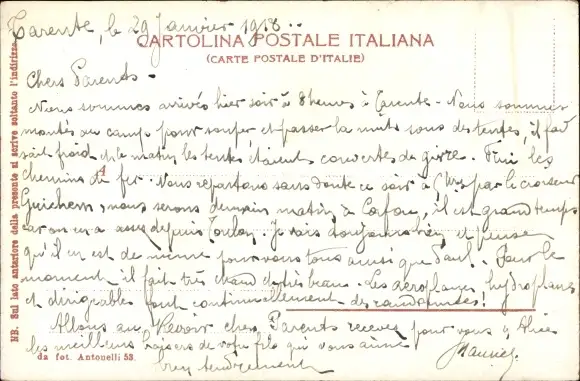 Tarente, le 29 Janvier 1918..
CARTOLINA POSTALE ITALIANA
(CARTE POSTALE D'ITALIE)
Chers Parents -
Nous sommes arrivés hier soir à 8 heures à Tarente - Nous sommes
montés au camp pour souper et passer la nuit sous des tentes, il fai
sait froid et le matin les tentes étaient couvertes de givre. Fini les
chemins de fer - Nous repartons sans doute ce soir à par le croiseur
Guichem, nous serons demain matin à Corfou, il est grand temps
car on en a assez depuis Toulon. Je vais toujours bien et pense
qu'il en est de même pour vous tous ainsi que Paul. Pour le
moment il fait très chaud et très beau. Les aéroplanes, hydroplanes
et dirigeables font continuellement des randonnées!
Allons au Revoir chers Parents recevez pour vous & Alice
les meilleurs baisers de votre fils qui vous aime
bien tendrement
Maurice
NB. Sul lato anteriore della presente si scrive soltanto l'indirizzo
da fot. Antonelli 53.